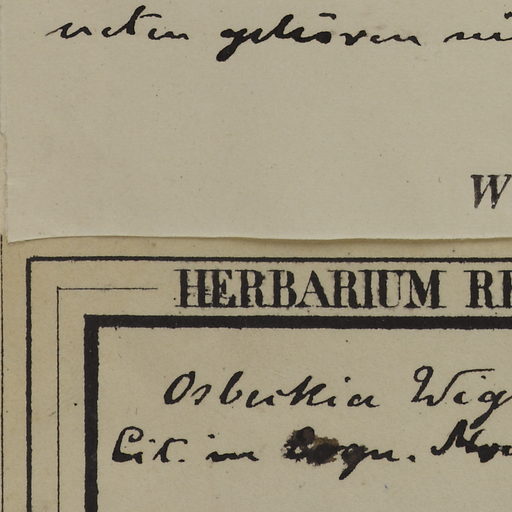 neten gehören
W
HERBARIUM RE
Osbeckia Wig
Cit. in Cogn. Mo